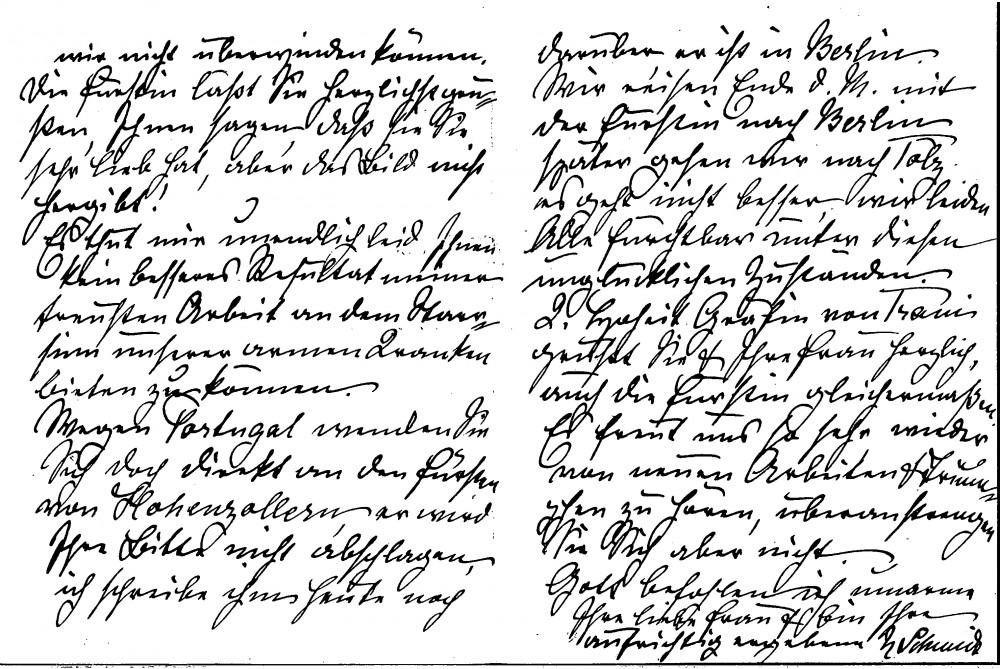 wir nicht überwinden können.
Die Fürstin läßt Sie herzlichst grü-
ßen, Ihnen sagen daß sie Sie
sehr lieb hat, aber das Bild nicht
hergibt!
Es thut mir unendlich leid Ihnen
kein besseres Resultat meiner
treusten Arbeit an dem Starr-
sinn unserer armen Kranken
bieten zu können.
Wegen Portugal wenden Sie
Sich doch direkt an den Fürsten
von Hohenzollern, er wird
Ihre Bitte nicht abschlagen,
ich schreibe ihm heute noch
darüber er ist in Berlin.
Wir reisen Ende d. M. mit
der Fürstin nach Berlin
später gehen wir nach Tölz.
es geht nicht besser, wir leiden
Alle furchtbar unter diesen
unglücklichen Zuständen.
K. Hoheit Gräfin von Trani
grüßt Sie & Ihre Frau herzlich,
auch die Fürstin gleichermaßen.
Es freut uns so sehr wieder
von neuen Arbeiten & Trium-
phen zu hören, überanstrengen
Sie Sich aber nicht.
Gott befohlen ich umarme
Ihre liebe Frau & bin Ihre
aufrichtig ergebene Schmidt